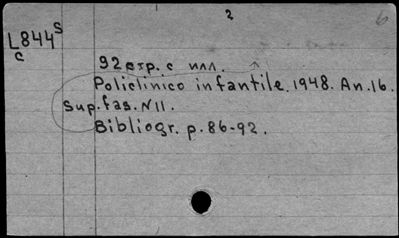 2
6
L844s
c
92 стр. с илл.
Policlinico infantile. 1948. An. 16.
Sup. fas. N11.
Bibliogr. p. 86-92.